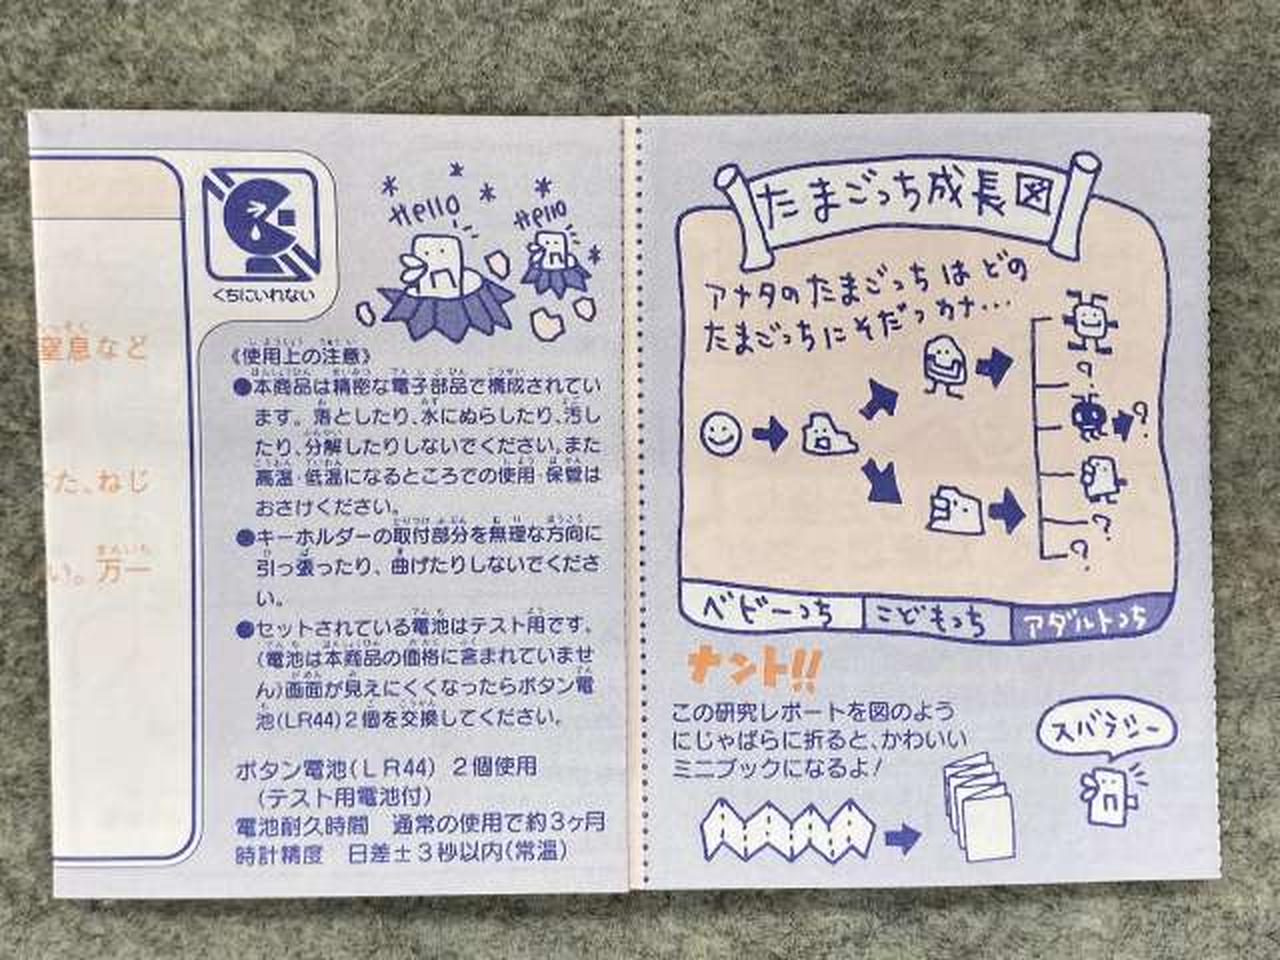 窒息など
た、ねじ
い。万一
くちにいれない
Hello
Hello
《使用上の注意》
●本商品は精密な電子部品で構成されてい
ます。落としたり、水にぬらしたり、汚し
たり、分解したりしないでください。また
高温・低温になるところでの使用・保管は
おさけください。
●キーホルダーの取付部分を無理な方向に
引っ張ったり、曲げたりしないでくださ
い。
●セットされている電池はテスト用です。
(電池は本商品の価格に含まれていませ
ん)画面が見えにくくなったらボタン電
池(LR44)2個を交換してください。
ボタン電池(LR44) 2個使用
(テスト用電池付)
電池耐久時間 通常の使用で約3ヶ月
時計精度 日差±3秒以内(常温)
たまごっち成長図
アナタのたまごっちはどの
たまごっちにそだつカナ…
?
?
?
?
ベビーっち
こどもっち
アダルトっち
ナント!!
この研究レポートを図のよう
にじゃばらに折ると、かわいい
ミニブックになるよ!
スバラシー